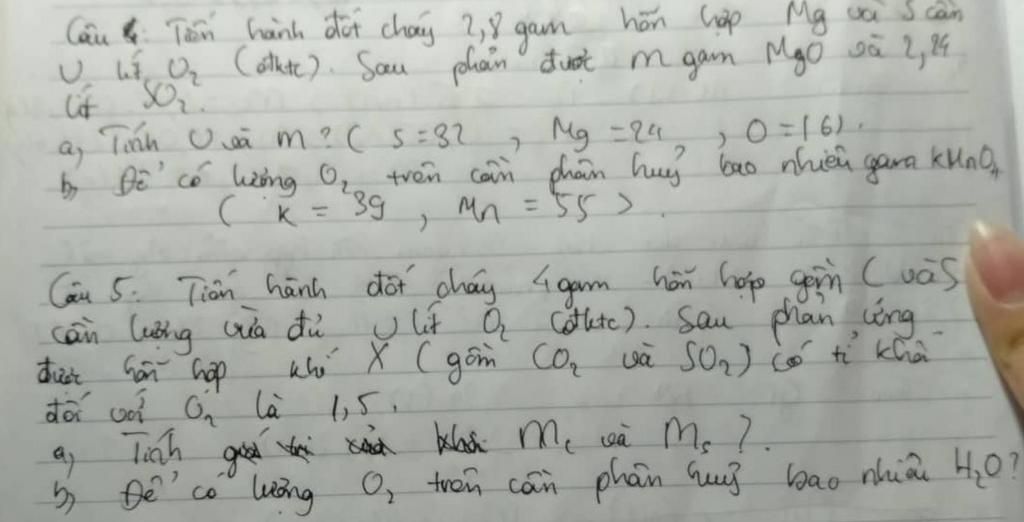 Câu 4: Tiến hành đốt cháy 2,8 gam hỗn hợp Mg và S cần
V lít O2 (ở đktc). Sau phản được m gam MgO và 2,24
lít SO2.
a, Tính V và m? ( S = 32 , Mg = 24 , O = 16).
b, Để có lượng O2 trên cần phân huỷ bao nhiêu gam KMnO4
( K = 39 , Mn = 55 ).
Câu 5: Tiến hành đốt cháy 4 gam hỗn hợp gồm C và S
cần lượng vừa đủ V lít O2 (ở đktc). Sau phản ứng
được hỗn hợp khí X (gồm CO2 và SO2) có tỉ khối
đối với O2 là 1,5.
a, Tính mC và mS ?.
b, Để có lượng O2 trên cần phân huỷ bao nhiêu H2O?